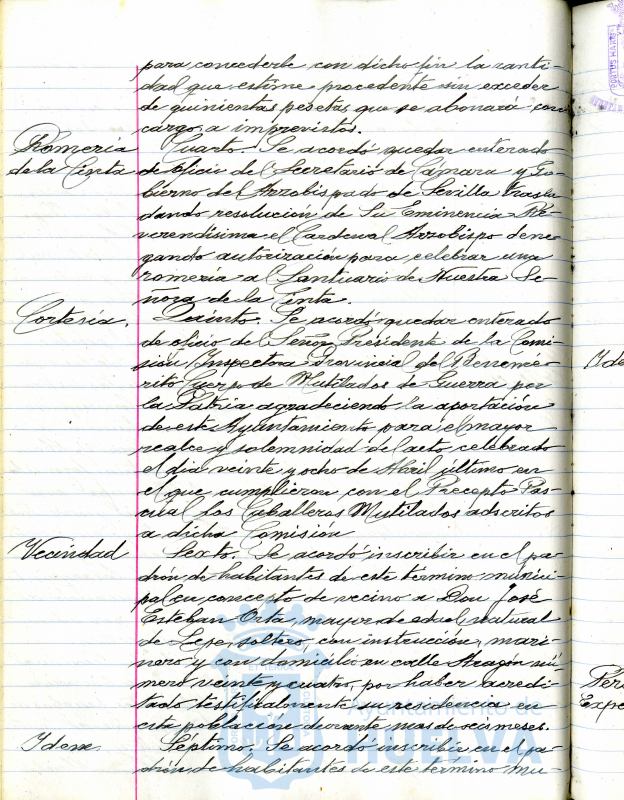 para concederle con dicho fin la canti-
dad que estime procedente sin exceder
de quinientas pesetas que se abonará con
cargo a imprevistos.
Romería
de la Cinta
Cuarto. Se acordó quedar enterado
de oficio del Secretario de Cámara y Go-
bierno del Arzobispado de Sevilla trasla-
dando resolución de Su Eminencia Re-
verendísima el Cardenal Arzobispo dene-
gando autorización para celebrar una
romería al Santuario de Nuestra Se-
ñora de la Cinta.
Cortesía.
Quinto. Se acordó quedar enterado
de oficio del Señor Presidente de la Comi-
sión Inspectora Provincial del Benemé-
rito Cuerpo de Mutilados de Guerra por
la Patria agradeciendo la aportación
de este Ayuntamiento para el mayor
realce y solemnidad del acto celebrado
el día veinte y ocho de Abril último en
el que cumplieron con el Precepto Pas-
cual los Caballeros Mutilados adscritos
a dicha Comisión
Vecindad
Sexto. Se acordó inscribir en el pa-
drón de habitantes de este término munici-
pal en concepto de vecino a Don José
Esteban Orta, mayor de edad, natural
de Lepe, soltero, con instrucción, mari-
nero y con domicilio en calle Aragón nú-
mero veinte y cuatro, por haber acredi-
tado testificalmente su residencia en
esta población durante mas de seis meses.
Idem
Séptimo. Se acordó inscribir en el pa-
drón de habitantes de este término mu-
Ayuntamiento de
HUELVA
PORTUS MARIS
Ide
Per
Expe